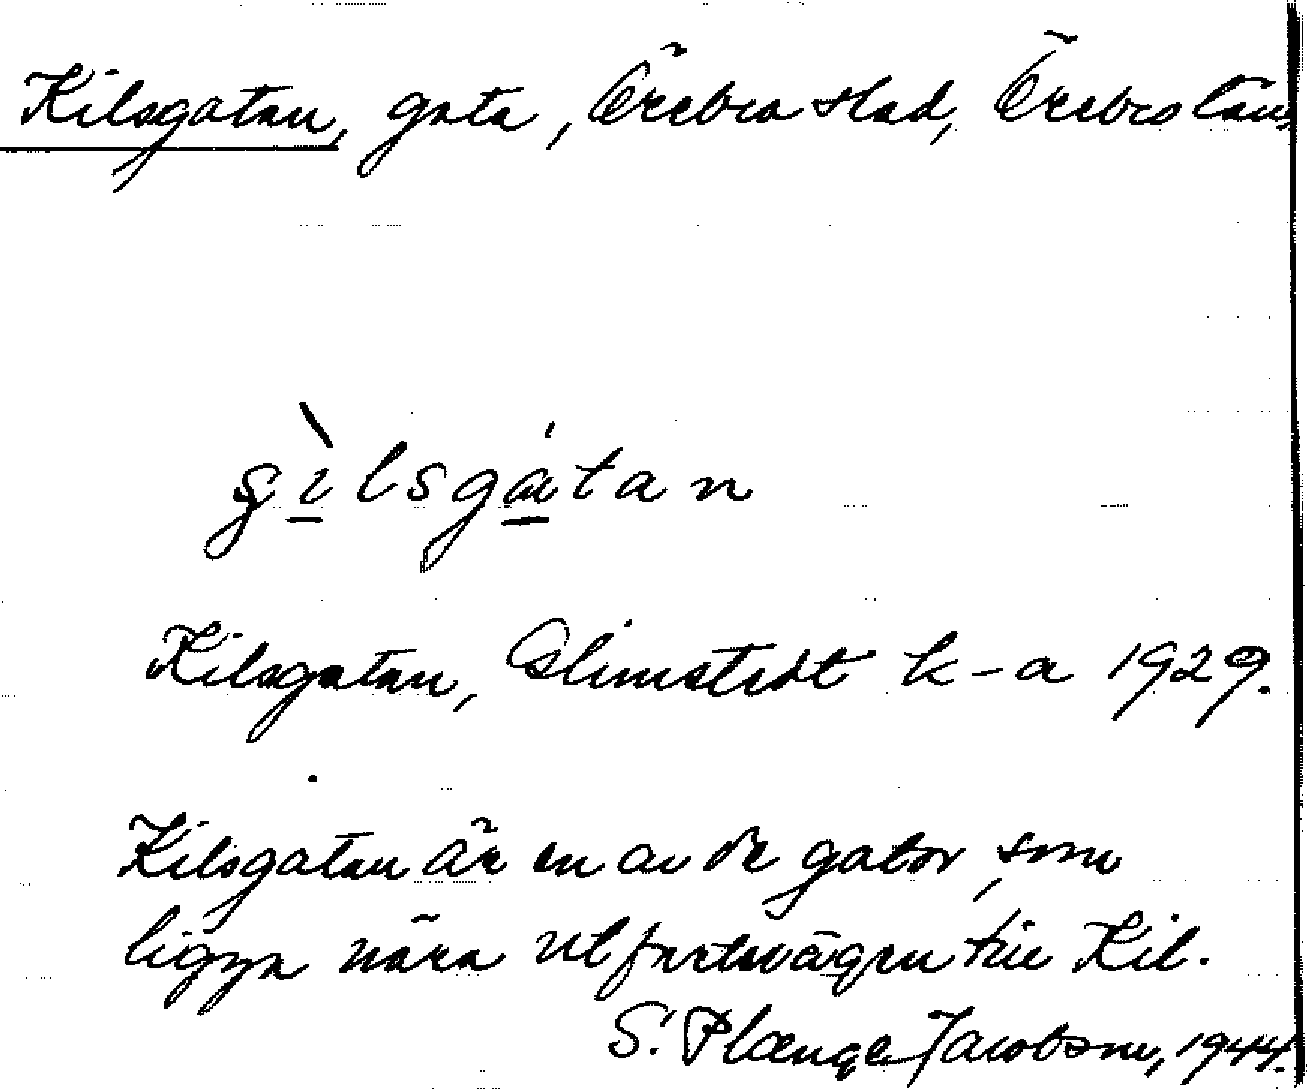 Kilsgatan, gata, Örebro stad, Örebro län,
Kilsgatan, Almstedt k-a 1929.
Kilsgatan är en av de gator, som
ligga nära utfartsvägen till Kil.
S. Plænge Jacobson, 1944.